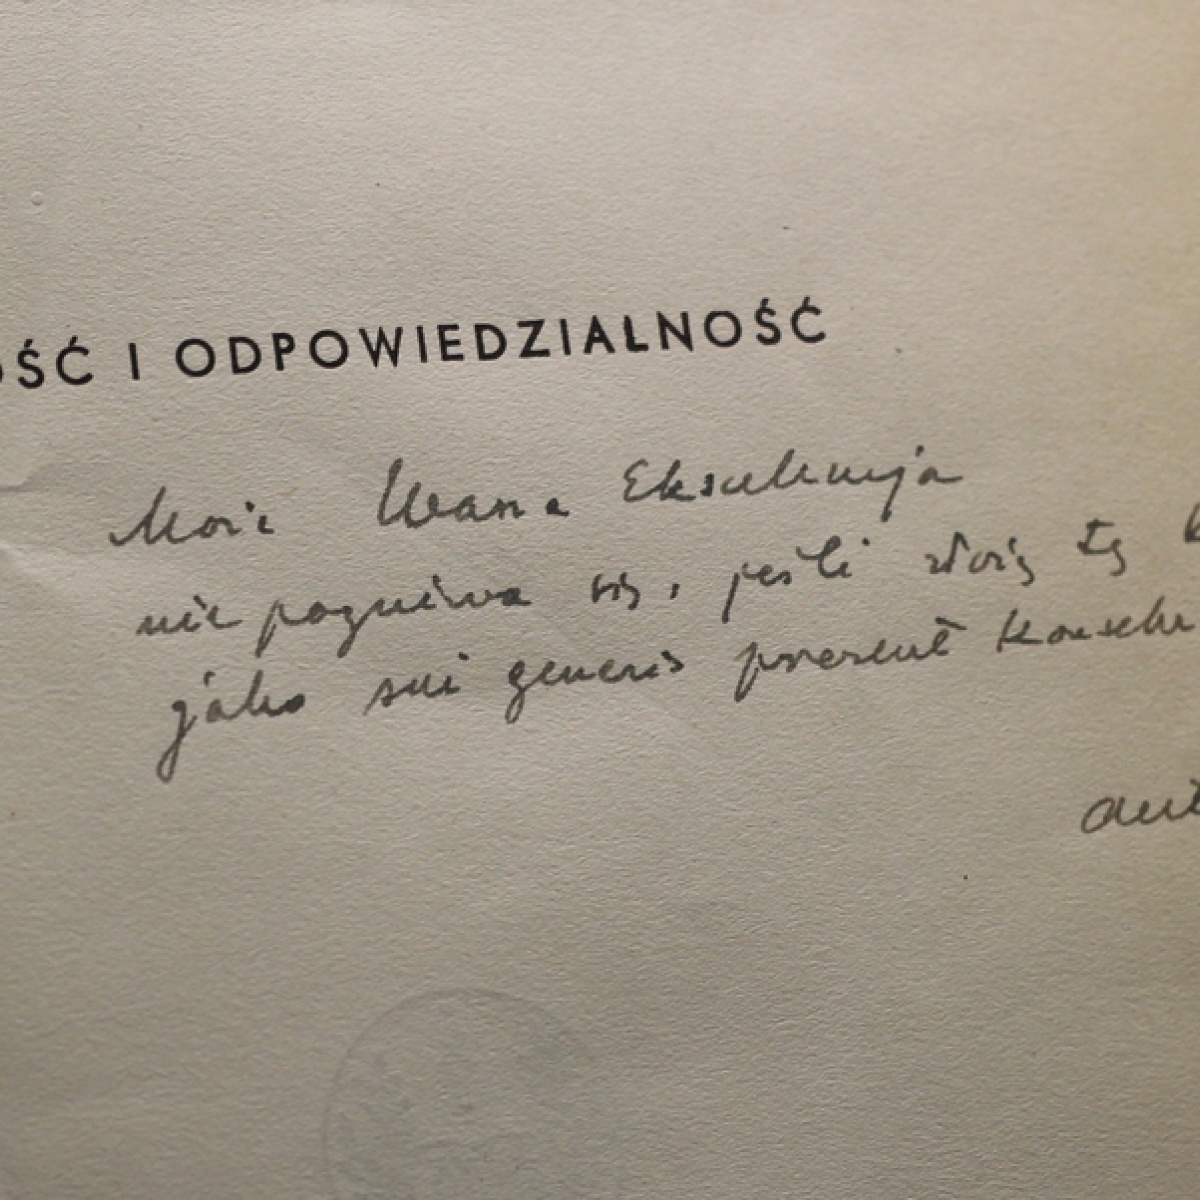 OŚĆ I ODPOWIEDZIALNOŚĆ
Może Wasza Ekscelencja
nie pogniewa się, jeśli złożę tę k
jako sui generis prezent
aut